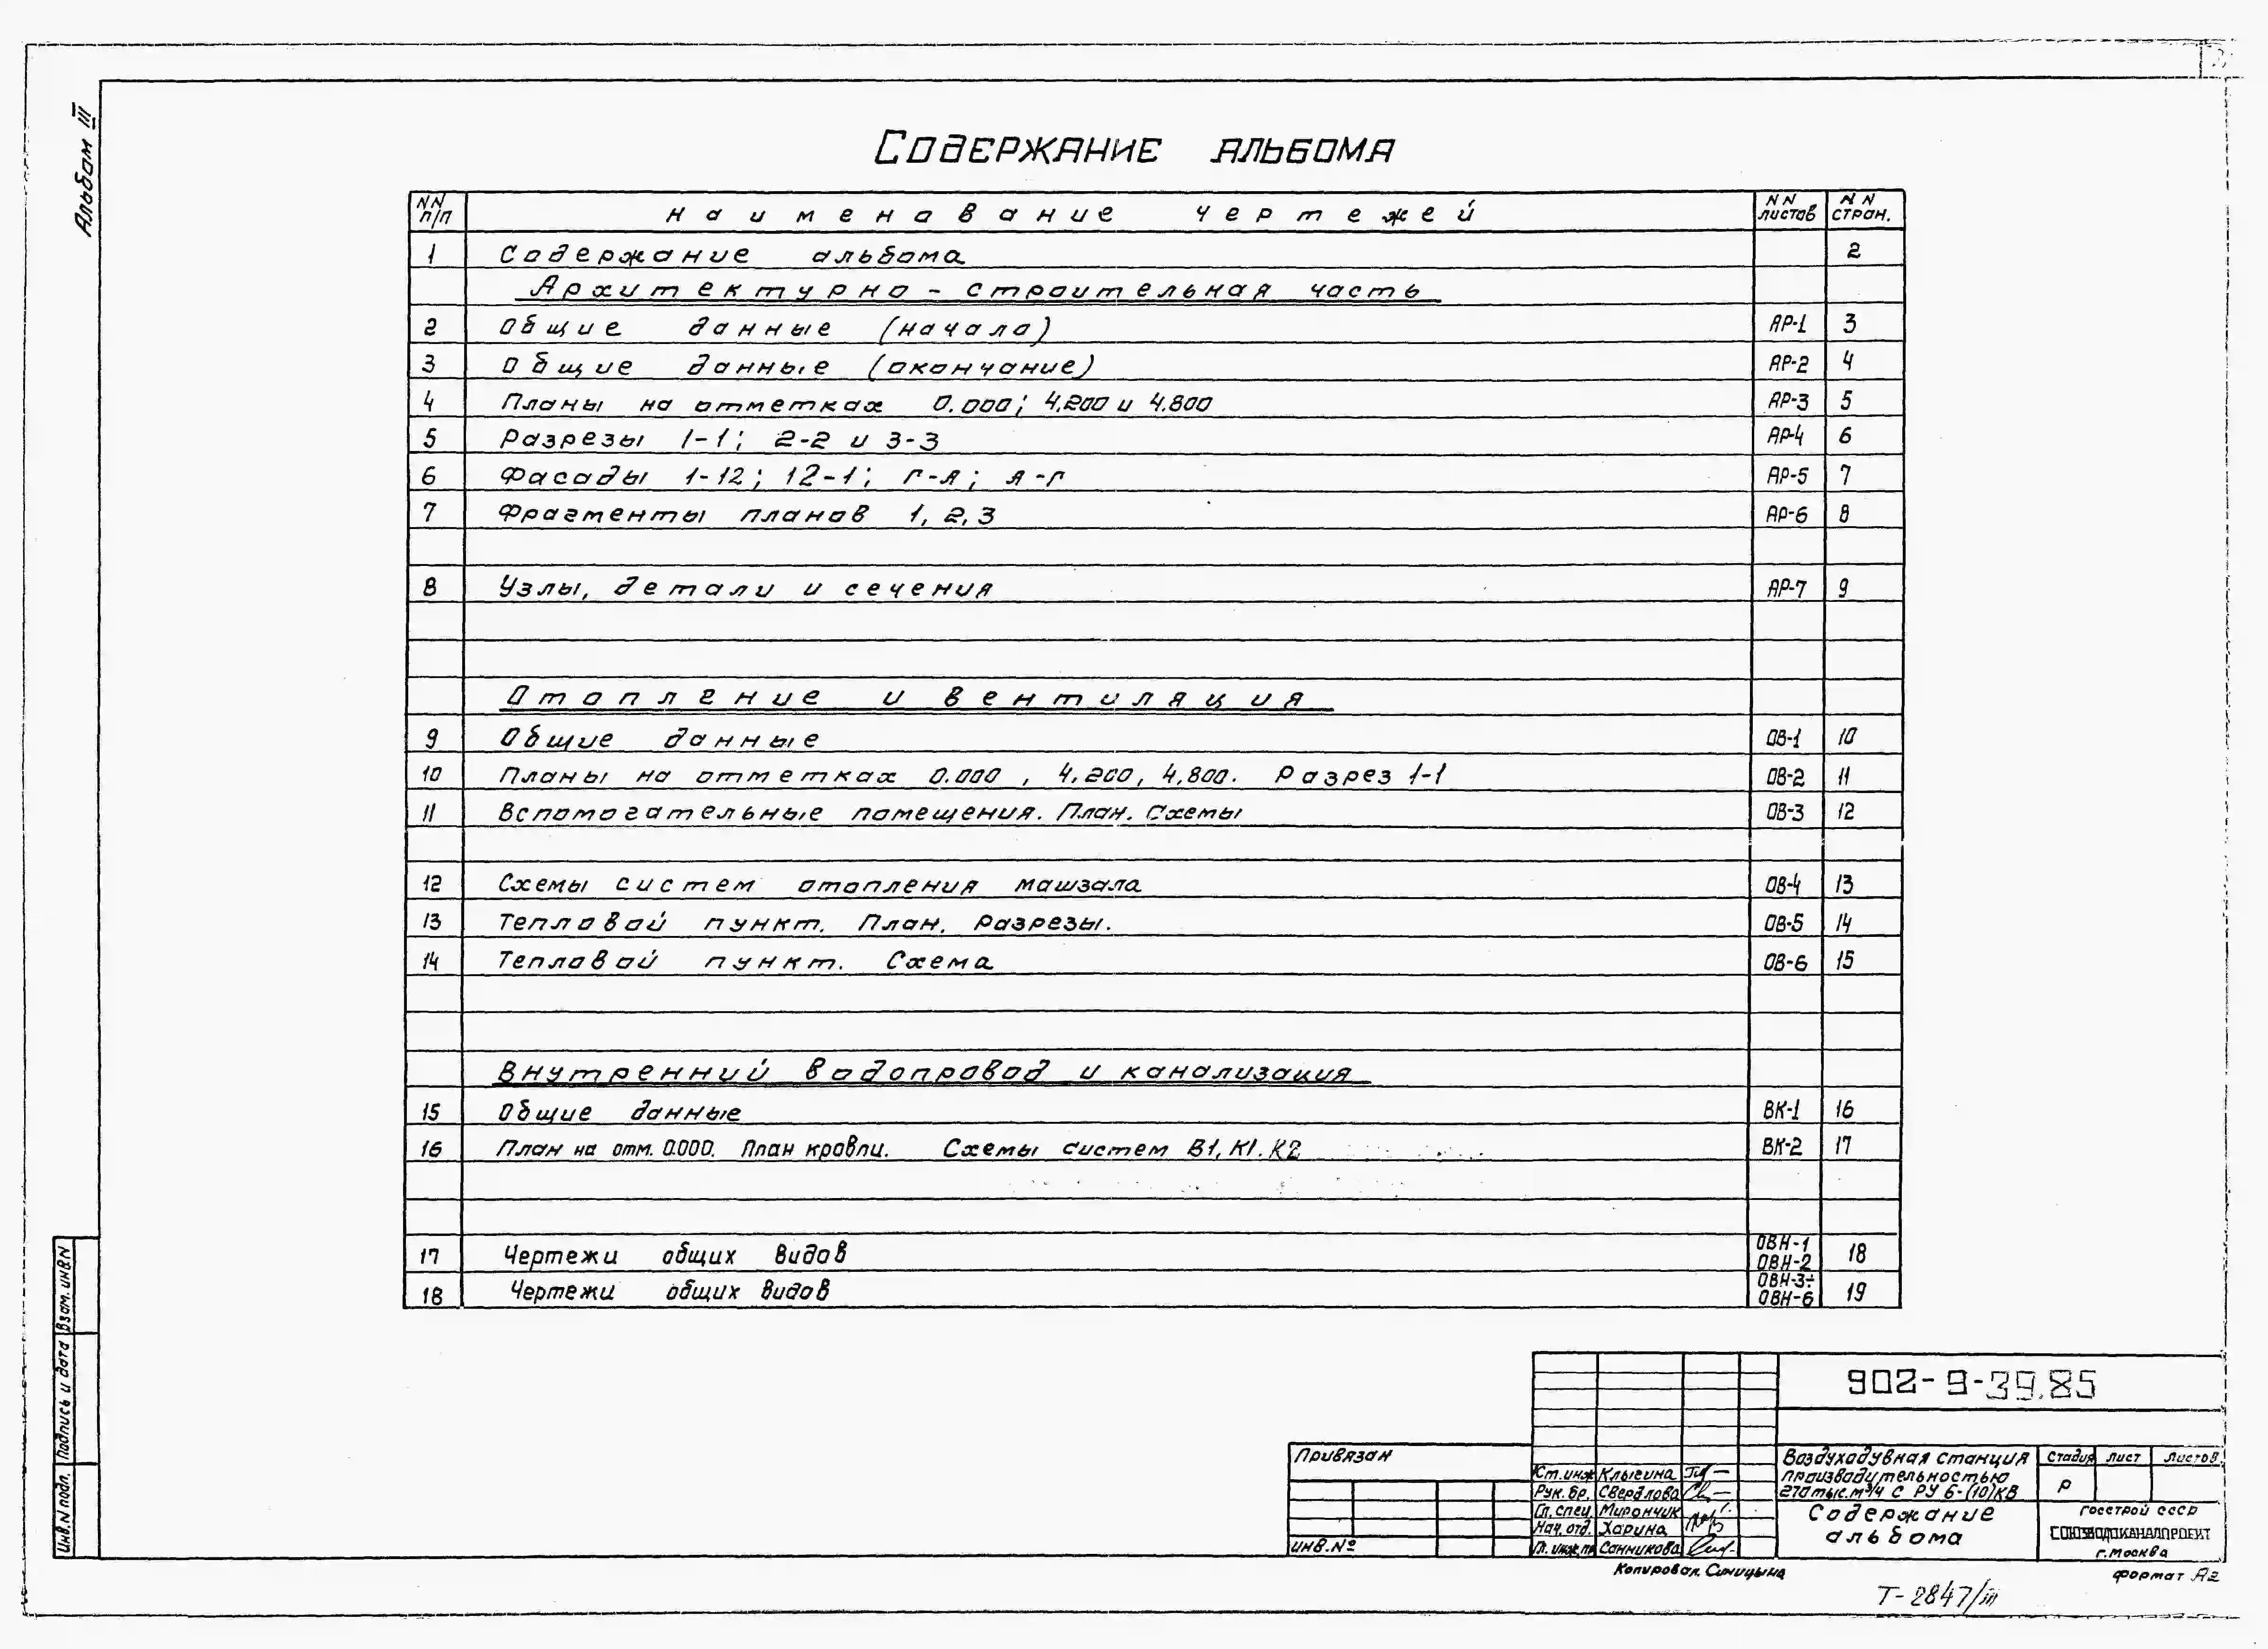 Альбом III
Содержание альбома
NN п/п Наименование чертежей NN листов NN стран.
1 Содержание альбома 2
Архитектурно-строительная часть
2 Общие данные (начало) АР-1 3
3 Общие данные (окончание) АР-2 4
4 Планы на отметках 0.000; 4.200 и 4.800 АР-3 5
5 Разрезы 1-1; 2-2 и 3-3 АР-4 6
6 Фасады 1-12; 12-1; Г-А; А-Г АР-5 7
7 Фрагменты планов 1, 2, 3 АР-6 8
8 Узлы, детали и сечения АР-7 9
Отопление и вентиляция
9 Общие данные ОВ-1 10
10 Планы на отметках 0.000, 4.200, 4.800. Разрез 1-1 ОВ-2 11
11 Вспомогательные помещения. План. Схемы ОВ-3 12
12 Схемы систем отопления машзала ОВ-4 13
13 Тепловой пункт. План. Разрезы. ОВ-5 14
14 Тепловой пункт. Схема ОВ-6 15
Внутренний водопровод и канализация
15 Общие данные ВК-1 16
16 План на отм. 0.000. План кровли. Схемы систем В1, К1. К2 ВК-2 17
17 Чертежи общих видов ОВН-1 ОВН-2 18
18 Чертежи общих видов ОВН-3÷ ОВН-6 19
Инв.N подл. Подпись и дата Взам. инв.N
902-9-39.85
Привязан
инв.№
Ст.инж Клыгина
Рук.бр. Свердлова
Гл.спец. Мирончик
Нач.отд. Харина
Гл.инж.пр Санникова
Воздуходувная станция
производительностью
270тыс.м³/ч с РУ 6-(10)кВ
Стадия Лист Листов
Р
Содержание
альбома
Госстрой СССР
СОЮЗВОДОКАНАЛПРОЕКТ
г.Москва
Копировал Синицына
формат А2
Т-2847/III